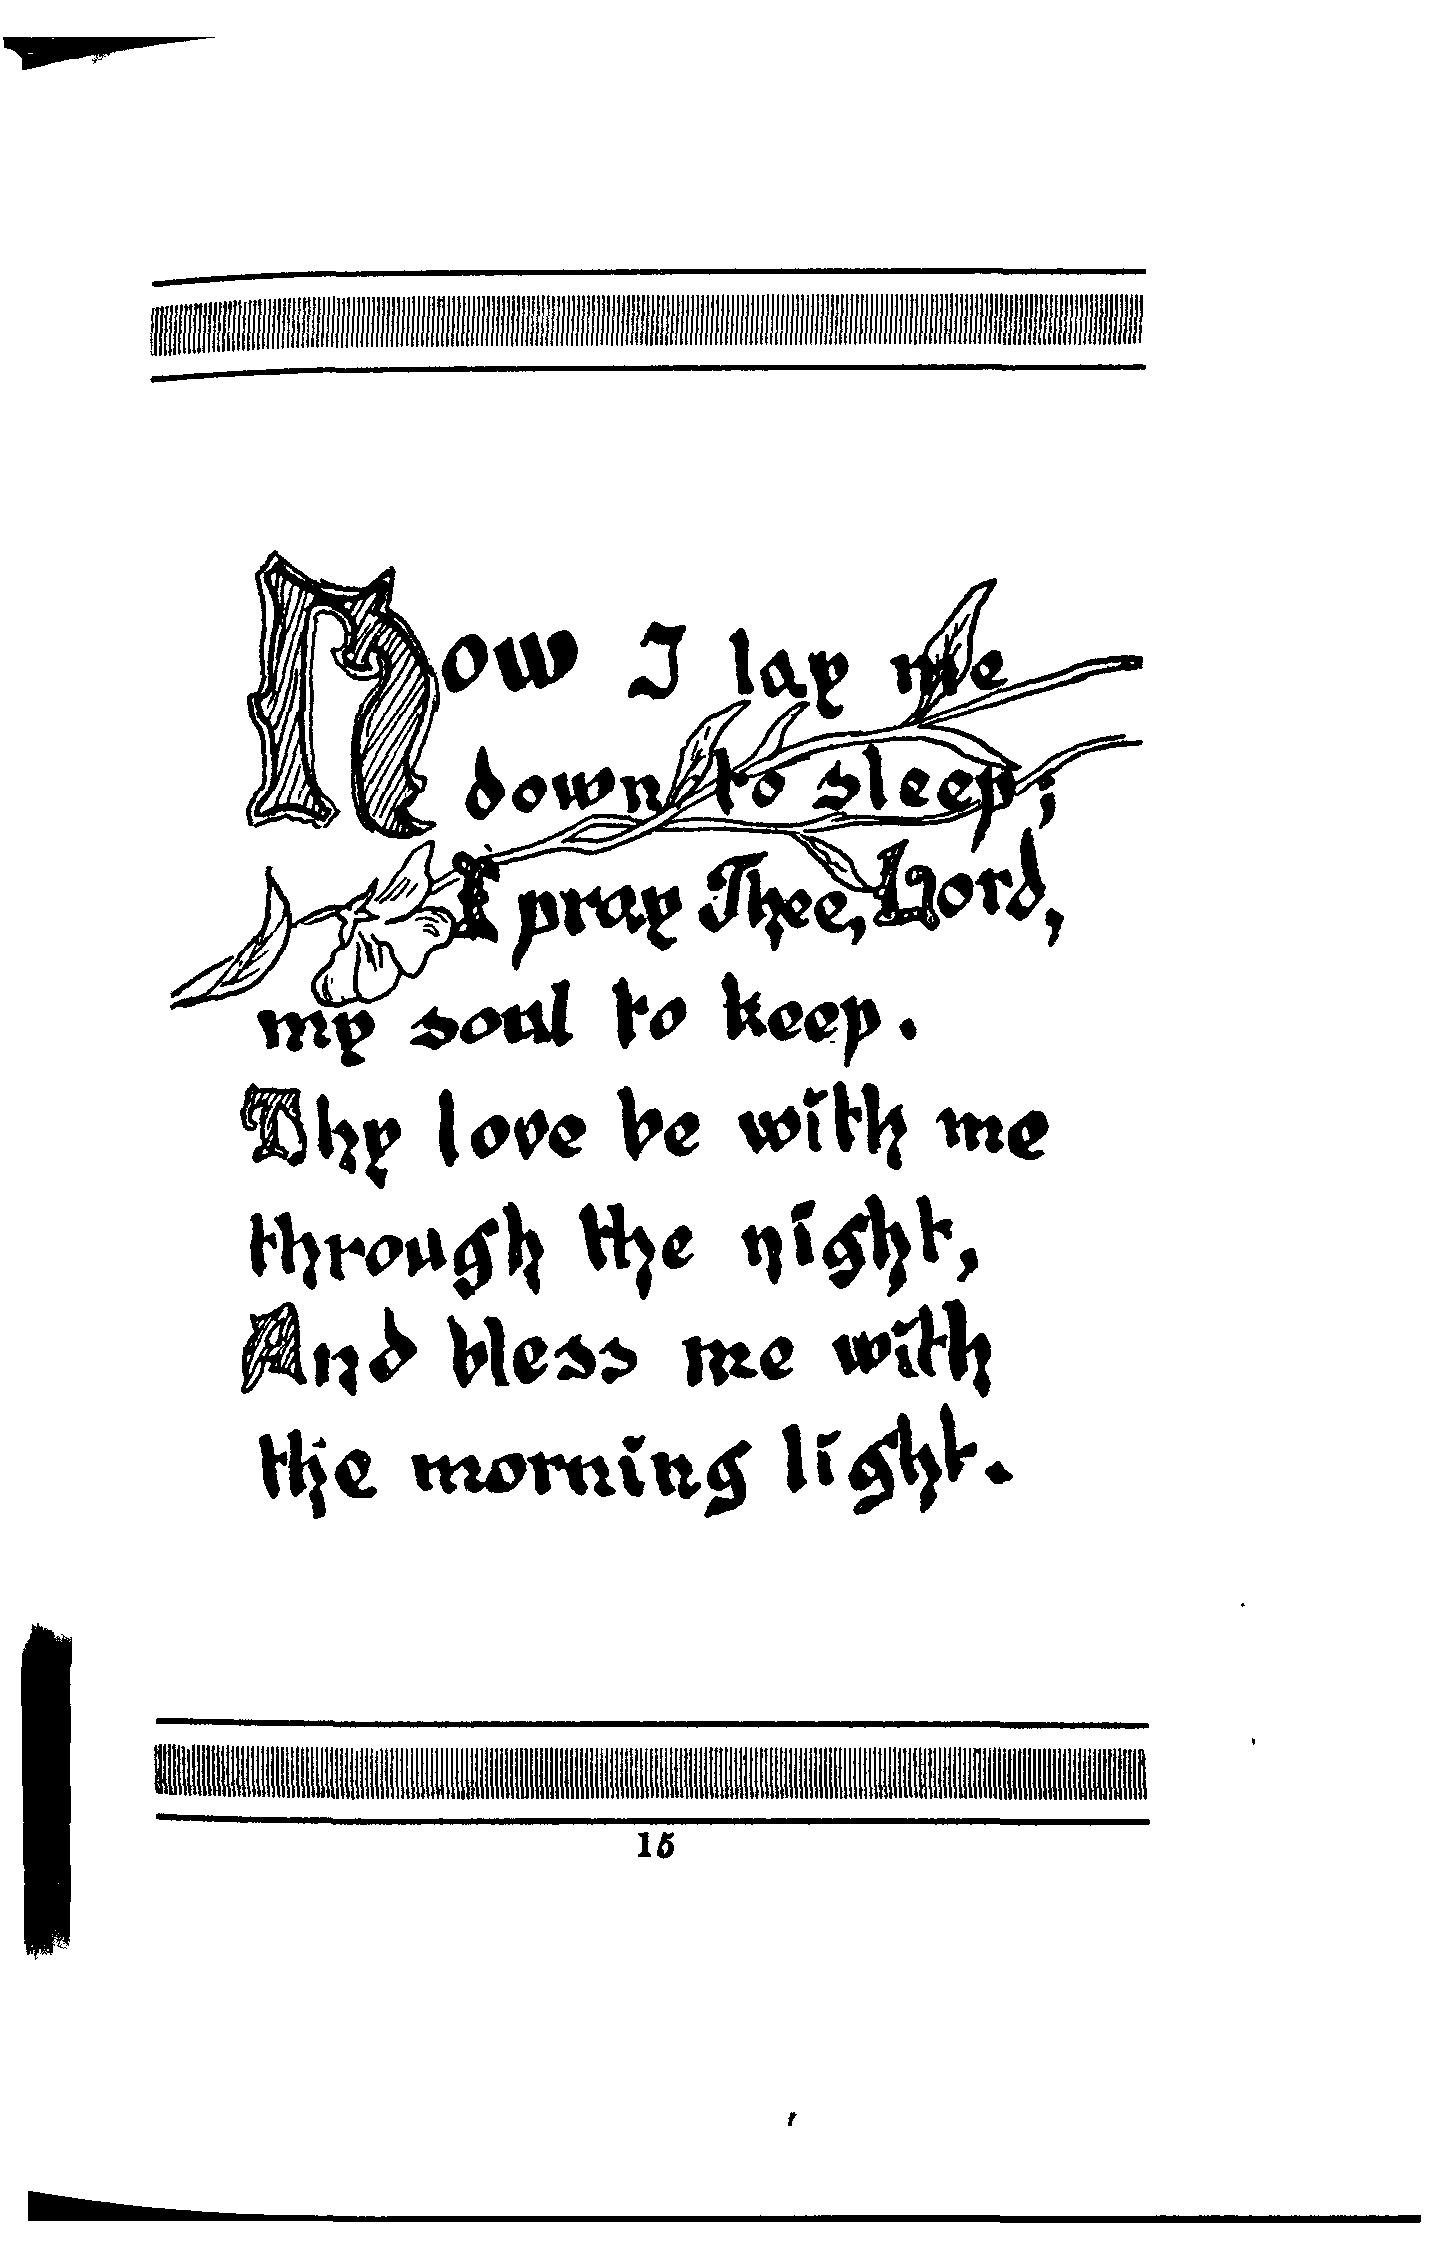 Now I lay me
down to sleep;
I pray Thee, Lord,
my soul to keep.
Thy love be with me
through the night,
And bless me with
the morning light.
15